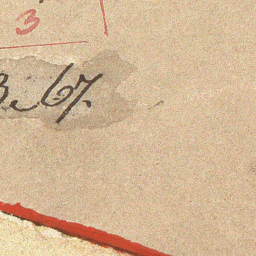 3
3. 67.